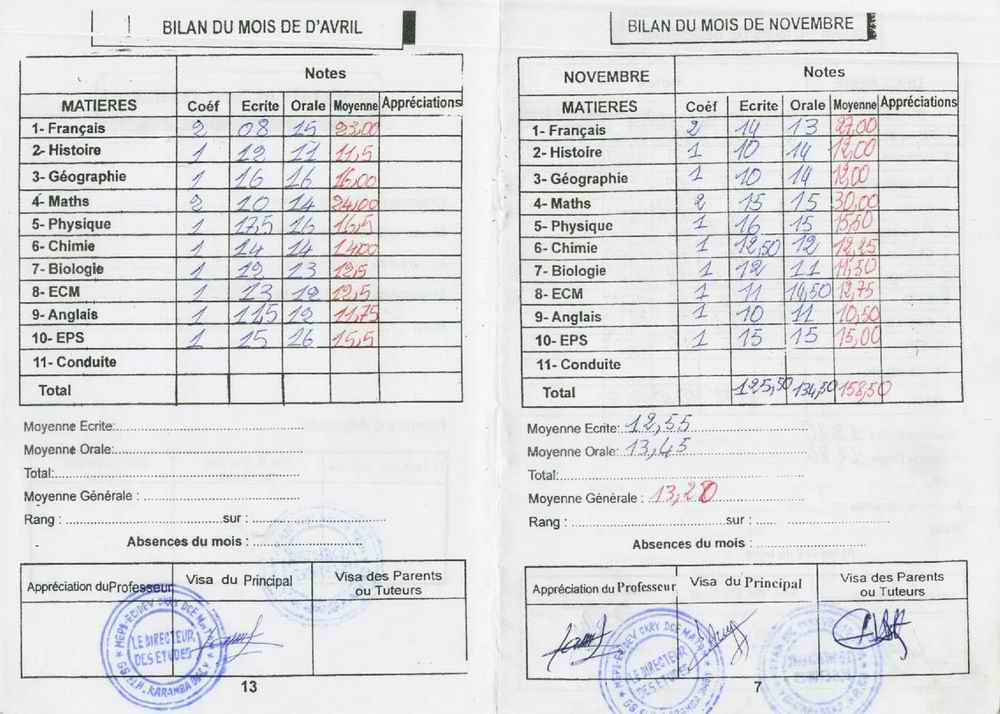 BILAN DU MOIS DE D'AVRIL
Notes
MATIERES Coéf Ecrite Orale Moyenne Appréciations
1- Français 2 08 15 23,00
2- Histoire 1 12 11 11,5
3- Géographie 1 16 16 16,00
4- Maths 2 10 14 24,00
5- Physique 1 17,5 16 16,5
6- Chimie 1 14 14 14,00
7- Biologie 1 12 13 12,5
8- ECM 1 13 12 12,5
9- Anglais 1 11,5 12 11,75
10- EPS 1 15 16 15,5
11- Conduite
Total
Moyenne Ecrite:
Moyenne Orale:
Total:
Moyenne Générale :
Rang : sur :
Absences du mois :
Appréciation du Professeur Visa du Principal Visa des Parents ou Tuteurs
LE DIRECTEUR
DES ETUDES
13
BILAN DU MOIS DE NOVEMBRE
NOVEMBRE Notes
MATIERES Coéf Ecrite Orale Moyenne Appréciations
1- Français 2 14 13 27,00
2- Histoire 1 10 14 12,00
3- Géographie 1 10 14 12,00
4- Maths 2 15 15 30,00
5- Physique 1 16 15 15,50
6- Chimie 1 12,50 12 12,25
7- Biologie 1 12 11 11,50
8- ECM 1 11 14,50 12,75
9- Anglais 1 10 11 10,50
10- EPS 1 15 15 15,00
11- Conduite
Total 125,50 134,50 158,50
Moyenne Ecrite: 12,55
Moyenne Orale: 13,45
Total:
Moyenne Générale : 13,20
Rang : sur :
Absences du mois :
Appréciation du Professeur Visa du Principal Visa des Parents ou Tuteurs
LE DIRECTEUR
DES ETUDES
7